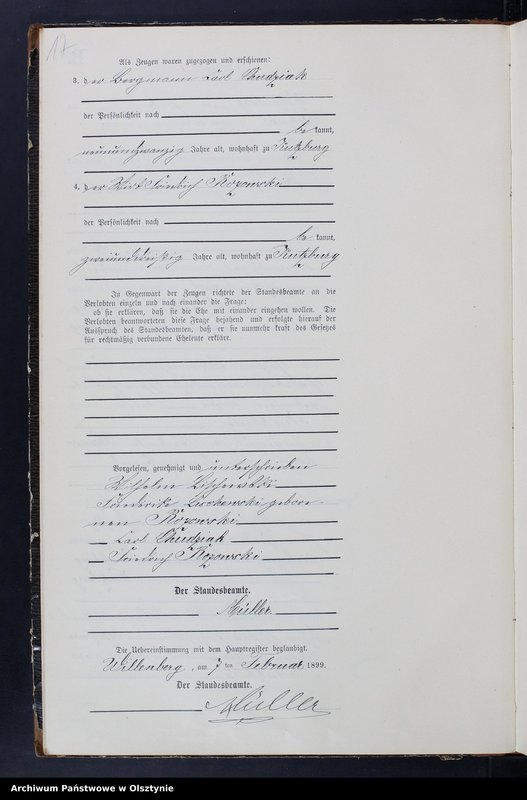 17
Als Zeugen waren zugezogen und erschienen:
3. der Bergmann Carl Chudziak
der Persönlichkeit nach
be kannt,
neunundzwanzig Jahre alt, wohnhaft zu Kutzburg
4. der Wirt Friedrich Kozowski
der Persönlichkeit nach
be kannt,
zweiunddreißig Jahre alt, wohnhaft zu Kutzburg
In Gegenwart der Zeugen richtete der Standesbeamte an die
Verlobten einzeln und nach einander die Frage:
ob sie erklären, daß sie die Ehe mit einander eingehen wollen. Die
Verlobten beantworteten diese Frage bejahend und erfolgte hierauf der
Ausspruch des Standesbeamten, daß er sie nunmehr kraft des Gesetzes
für rechtmäßig verbundene Eheleute erkläre.
Vorgelesen, genehmigt und unterschrieben
Wilhelm
Friederike gebore
nen Kozowski
Carl Chudziak
Friedrich Kozowski
Der Standesbeamte.
Müller.
Die Uebereinstimmung mit dem Hauptregister beglaubigt.
Willenberg, am 7 ten Februar 1899.
Der Standesbeamte.
Müller
Archiwum Państwowe w Olsztynie